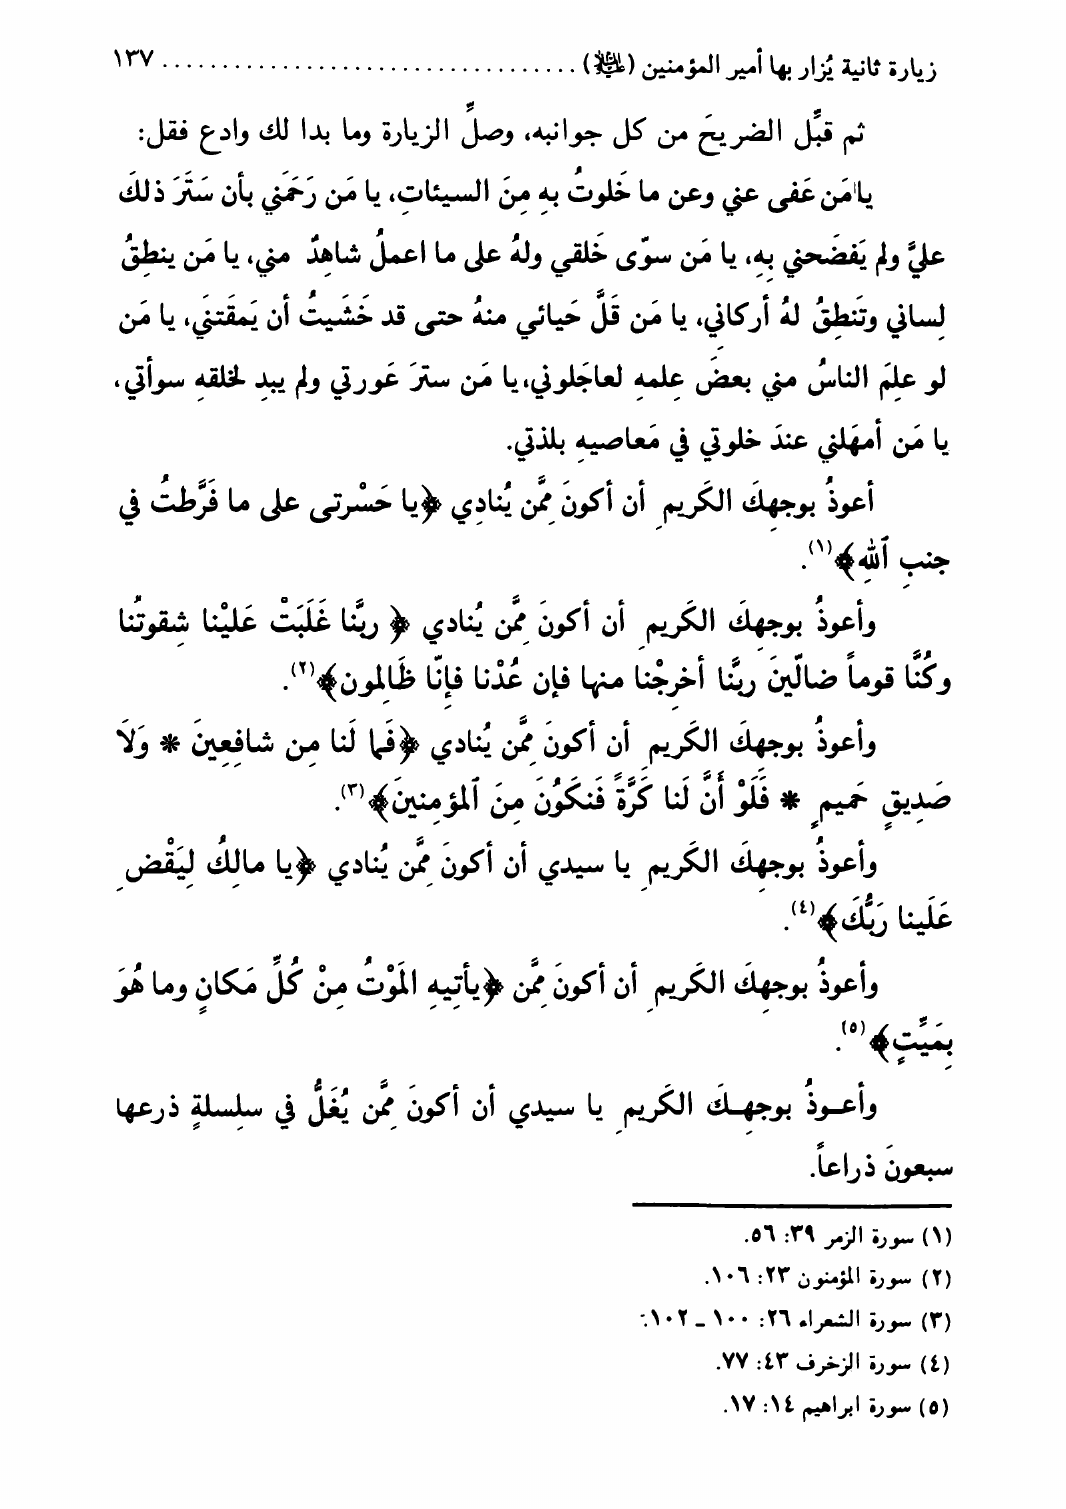 زيارة ثانية يُزار بها أمير المؤمنين (عليه السلام) .................................. ١٣٧
ثم قبِّل الضريحَ من كل جوانبه، وصلِّ الزيارة وما بدا لك وادع فقل:
يا مَن عَفى عني وعن ما خَلوتُ بهِ مِنَ السيئاتِ، يا مَن رَحَمَني بأن سَتَرَ ذلكَ
عليَّ ولم يَفضَحني بِهِ، يا مَن سوّى خَلقي ولهُ على ما اعملُ شاهِدٌ مني، يا مَن ينطِقُ
لِساني وتَنطِقُ لهُ أركاني، يا مَن قَلَّ حَيائي منهُ حتى قد خَشَيتُ أن يَمقَتنَي، يا مَن
لو علِمَ الناسُ مني بعضَ عِلمهِ لعاجَلوني، يا مَن سترَ عَورتي ولم يبدِ لخلقهِ سوأتي،
يا مَن أمهَلني عندَ خلوتي في مَعاصيهِ بلذتي.
أعوذُ بوجهِكَ الكَريمِ أن أكونَ مِمَّن يُنادِي ﴿يا حَسْرتى على ما فَرَّطتُ في
جنبِ ٱللهِ﴾(١).
وأعوذُ بوجهِكَ الكَريمِ أن أكونَ مِمَّن يُنادي ﴿ ربَّنا غَلَبَتْ عَليْنا شِقوتُنا
وكُنَّا قوماً ضالّينَ ربنَّا أخرِجْنا منها فإن عُدْنا فإنّا ظَالِمون﴾(٢).
وأعوذُ بوجهِكَ الكَريمِ أن أكونَ مِمَّن يُنادي ﴿فَما لَنا مِن شافِعِينَ * وَلَا
صَدِيقٍ حَميمٍ * فَلَوْ أَنَّ لَنا كَرَّةً فَنكَوُنَ مِنَ ٱلمؤمِنينَ﴾(٣).
وأعوذُ بوجهِكَ الكَريمِ يا سيدي أن أكونَ مِمَّن يُنادي ﴿يا مالِكُ لِيَقْضِ
عَلَينا رَبُّكَ﴾(٤).
وأعوذُ بوجهِكَ الكَريمِ أن أكونَ مِمَّن ﴿يأتِيهِ المَوْتُ مِنْ كُلِّ مَكانٍ وما هُوَ
بِمَيِّتٍ﴾(٥).
وأعـوذُ بوجهِـكَ الكَريمِ يا سيدي أن أكونَ مِمَّن يُغَلُّ في سلِسلةٍ ذرعها
سبعونَ ذراعاً.
(١) سورة الزمر ٣٩: ٥٦.
(٢) سورة المؤمنون ٢٣: ١٠٦.
(٣) سورة الشعراء ٢٦: ١٠٠ ـ ١٠٢.
(٤) سورة الزخرف ٤٣: ٧٧.
(٥) سورة ابراهيم ١٤: ١٧.